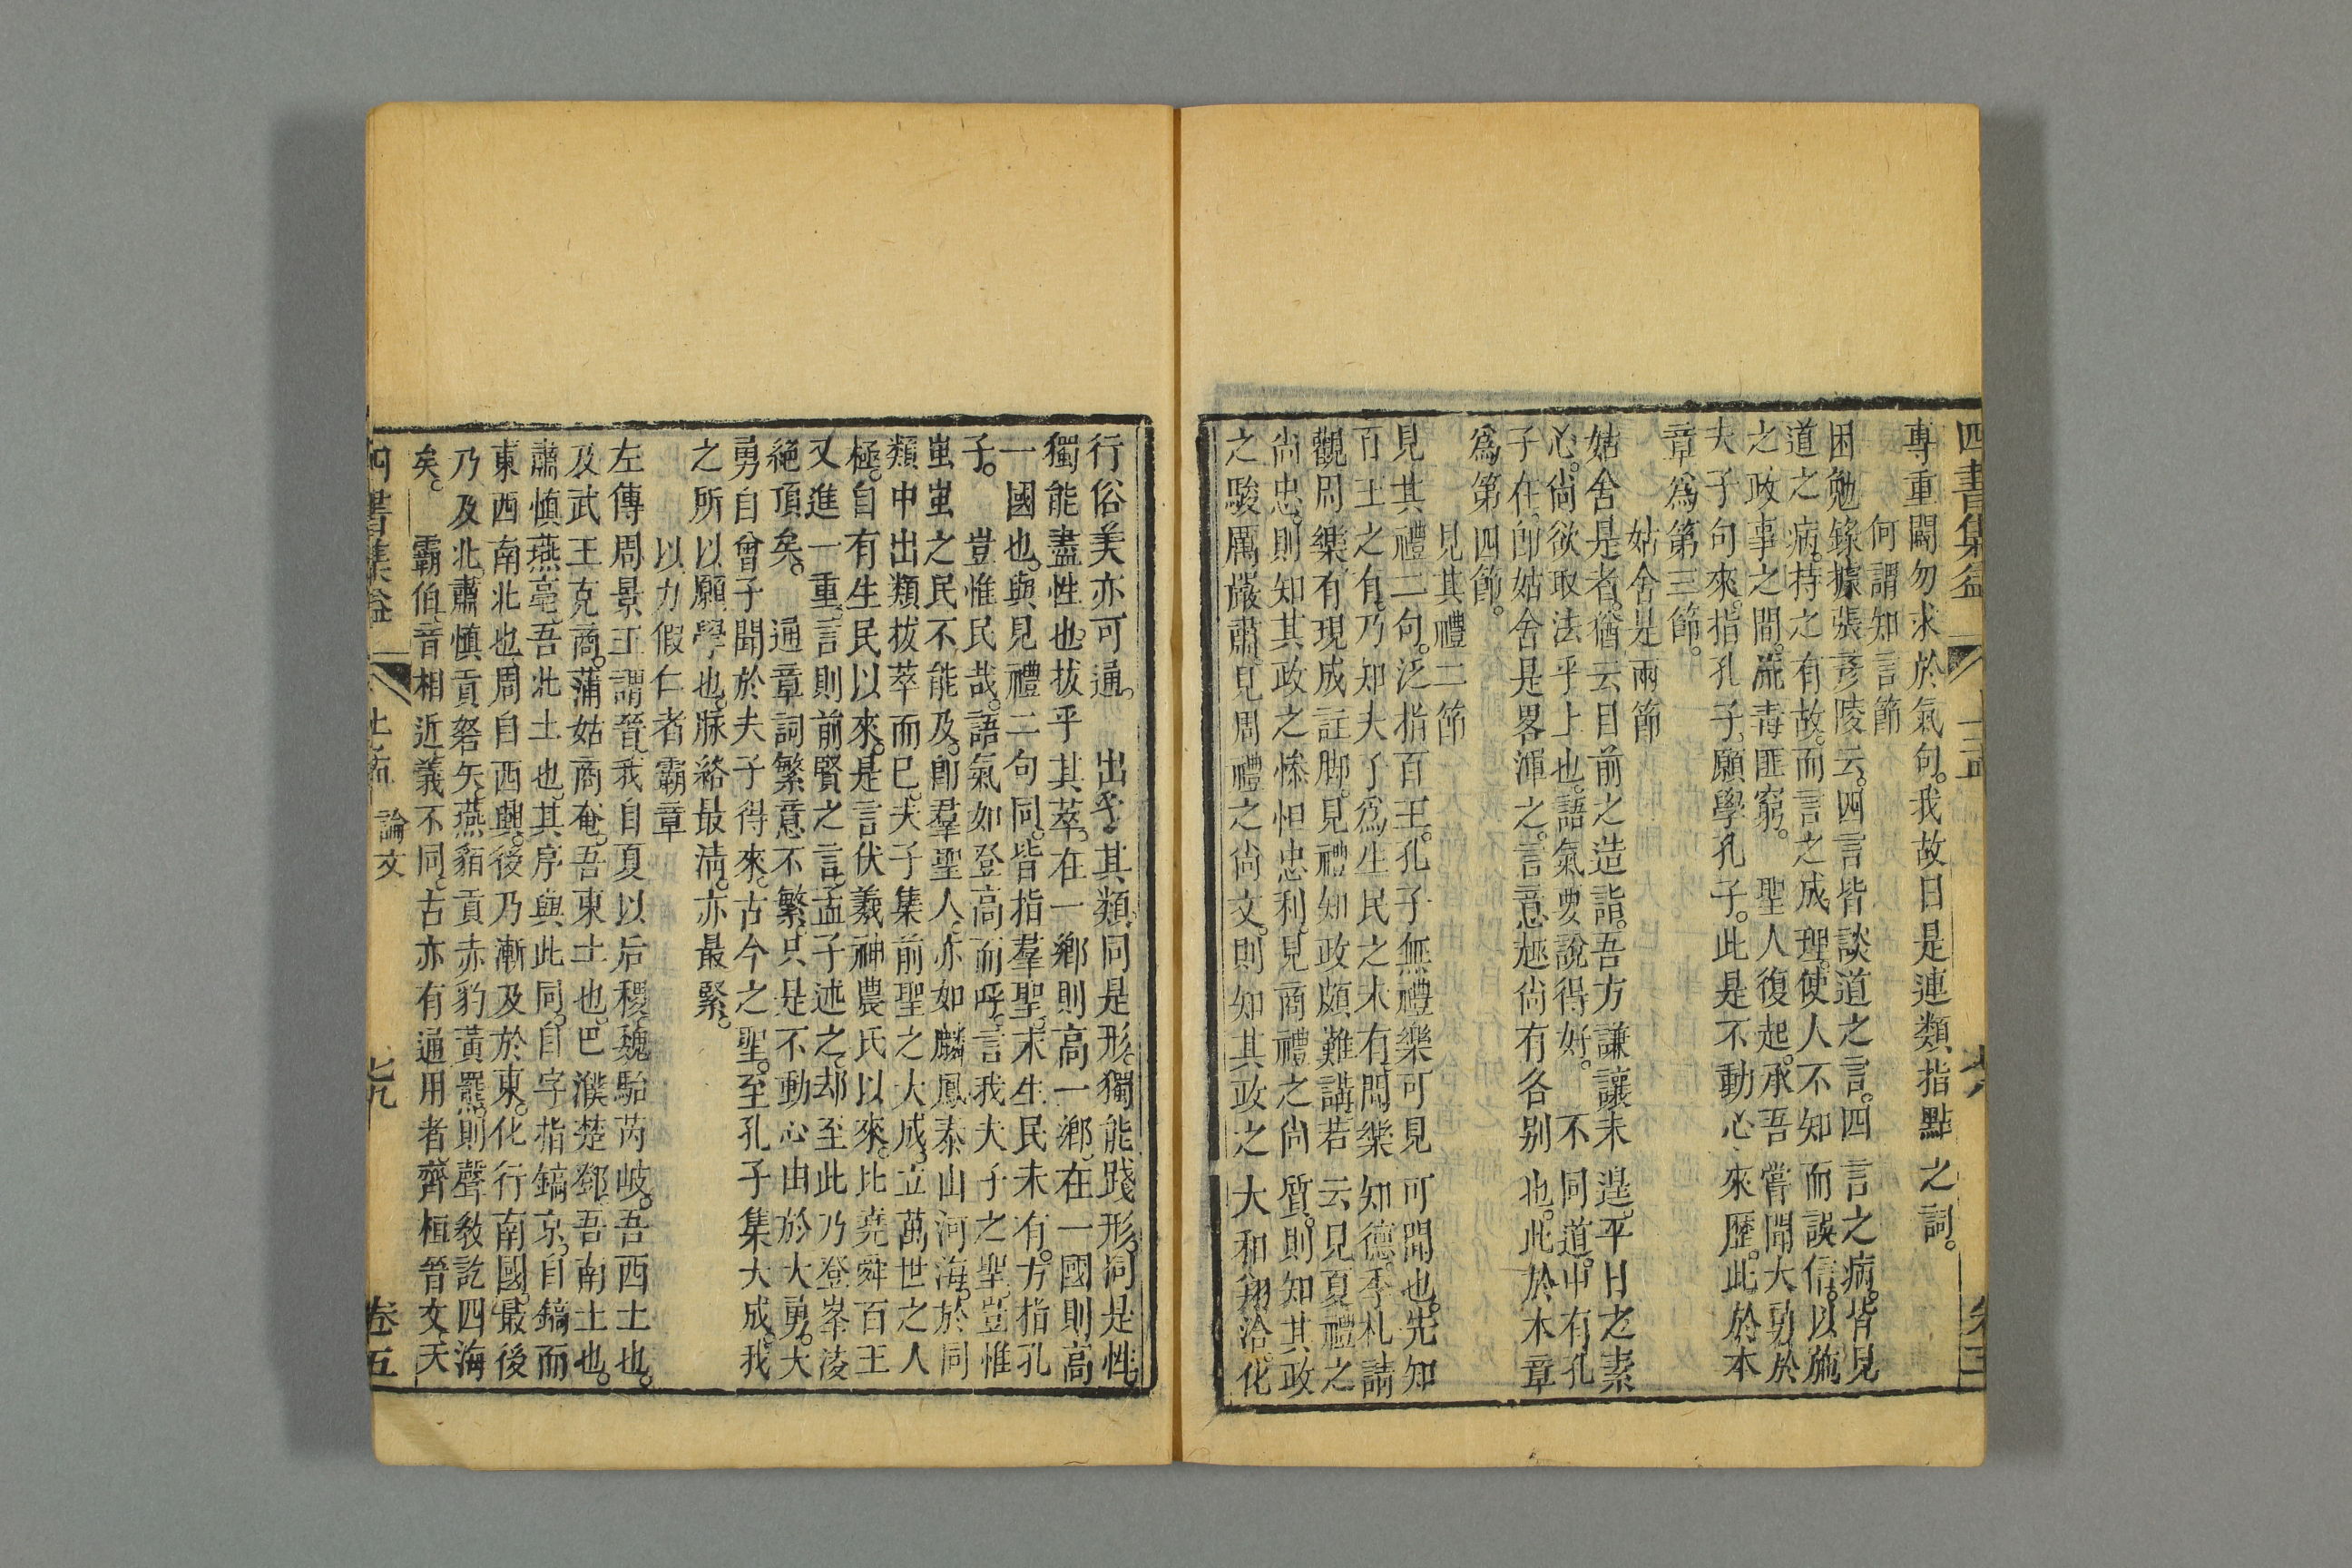 四書集益
專重闢勿求於氣句。我故曰是連類指點之詞。
何謂知言節
困勉錄據張彥陵云。四言皆談道之言。四言之病。皆見
道之病。持之有故。而言之成理。使人不知而誤信。以施
之政事之間。流毒匪窮。聖人復起。承吾嘗聞大勇於
夫子句來。指孔子。願學孔子。此是不動心來歷。此於本
章爲第三節。
姑舍是兩節
姑舍是者。猶云目前之造詣。吾方謙讓未遑。平日之素
心。尚欲取法乎上也。語氣要說得好。不同道。中有孔
子在。卽姑舍是畧渾之。言意越尚有各别也。此於本章
爲第四節。
見其禮二節
見其禮二句。泛指百王。孔子無禮樂可見可聞也。先知
百王之有。乃知夫子爲生民之未有。聞樂知德。季札請
觀周樂。有現成註脚。見禮知政頗難講。若云見夏禮之
尚忠。則知其政之慘怛忠利。見商禮之尚質。則知其政
之駿厲嚴肅。見周禮之尚文。則知其政之大和翔洽。化
行俗美亦可通。出乎其類。同是形。獨能踐形。同是性。
獨能盡性也。拔乎其萃。在一鄉則高一鄉。在一國則高
一國也。與見禮二句同。皆指羣聖。末生民未有。方指孔
子。豈惟民哉。語氣如登高而呼。言我夫子之聖。豈惟
蚩蚩之民不能及。卽羣聖人。亦如麟鳳泰山河海。於同
類中出類拔萃而已。夫子集前聖之大成。立萬世之人
極。自有生民以來。是言伏羲神農氏以來。比堯舜百王
又進一重。言則前賢之言。孟子述之。却至此乃登峯淩
絕頂矣。通章詞繁意不繁。只是不動心由於大勇。大
勇自曾子聞於夫子得來。古今之聖。至孔子集大成。我
之所以願學也。脉絡最淸。亦最緊。
以力假仁者霸章
左傳周景王謂晉。我自夏以后稷。魏駘芮岐。吾西土也。
及武王克商。蒲姑商奄。吾東土也。巴濮楚鄧。吾南土也。
肅愼燕亳。吾北土也。其序與此同。自字指鎬京。自鎬而
東西南北也。周自西興。後乃漸及於東。化行南國。最後
乃及北。肅愼貢砮矢。燕貊貢赤豹黃羆。則聲敎訖四海
矣。霸伯。音相近。義不同。古亦有通用者。齊桓晉文。天
四書集益
論文
七九
卷五